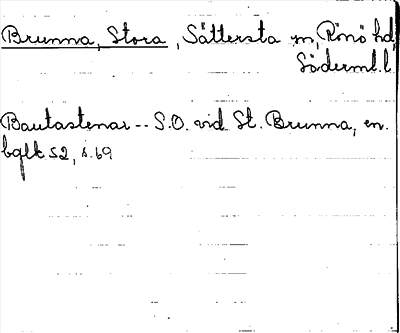 Brunna, Stora, Sättersta sn, Rönö hd,
Söderml. l.
Bautastenar -- S.O. vid St. Brunna, en.
bglt 52, s. 69